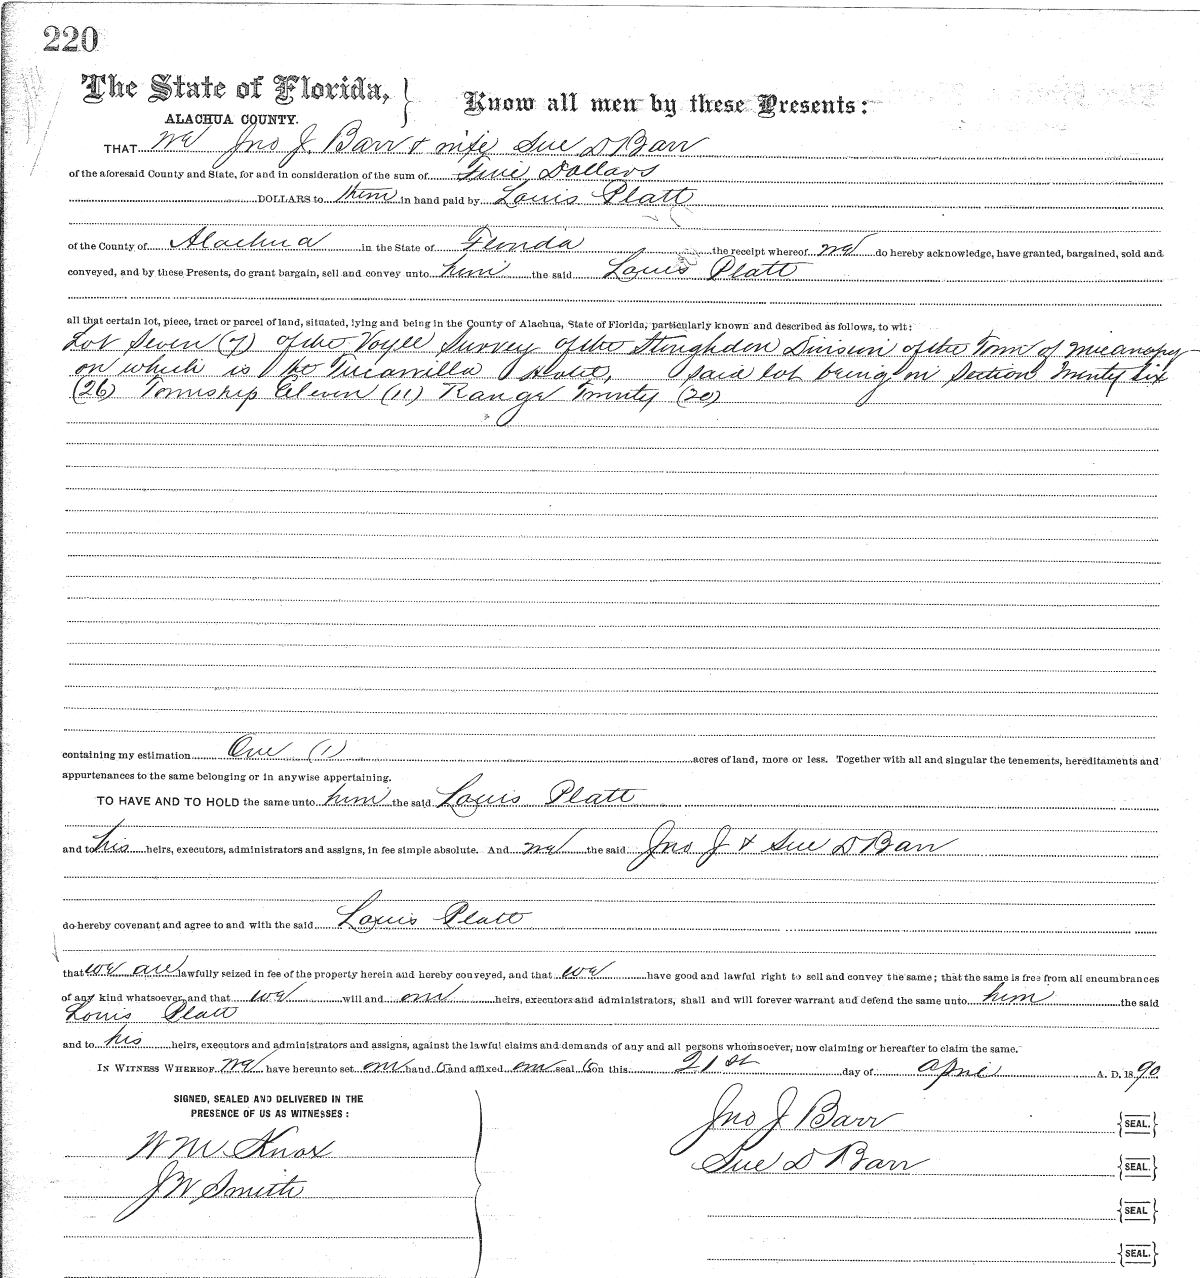 220
The State of Florida,
ALACHUA COUNTY.
Know all men by these Presents:
THAT we Jno J. Barr & wife Sue D Barr
of the aforesaid County and State, for and in consideration of the sum of Five Dollars
DOLLARS to them in hand paid by Louis Platt
of the County of Alachua in the State of Florida the receipt whereof we do hereby acknowledge, have granted, bargained, sold and
conveyed, and by these Presents, do grant bargain, sell and convey unto him the said Louis Platt
all that certain lot, piece, tract or parcel of land, situated, lying and being in the County of Alachua, State of Florida, particularly known and described as follows, to wit:
Lot Seven (7) of the Voyle Survey of the Division of the Town of Micanopy
on which is the Tuscawilla Hotel, said lot being in Section Twenty Six
(26) Township Eleven (11) Range Twenty (20)
containing my estimation One (1) acres of land, more or less. Together with all and singular the tenements, hereditaments and
appurtenances to the same belonging or in anywise appertaining.
TO HAVE AND TO HOLD the same unto him the said Louis Platt
and to his heirs, executors, administrators and assigns, in fee simple absolute. And we the said Jno J & Sue D Barr
do hereby covenant and agree to and with the said Louis Platt
that we are lawfully seized in fee of the property herein and hereby conveyed, and that we have good and lawful right to sell and convey the same; that the same is free from all encumbrances
of any kind whatsoever, and that we will and our heirs, executors and administrators, shall and will forever warrant and defend the same unto him the said
Louis Platt
and to his heirs, executors and administrators and assigns, against the lawful claims and demands of any and all persons whomsoever, now claiming or hereafter to claim the same.
IN WITNESS WHEREOF we have hereunto set our hand s and affixed our seal s on this 21st day of April A. D. 18 90
SIGNED, SEALED AND DELIVERED IN THE
PRESENCE OF US AS WITNESSES:
Jno J Barr {SEAL.}
W M Knox
Sue D Barr {SEAL.}
J W Smith
{SEAL}
{SEAL.}